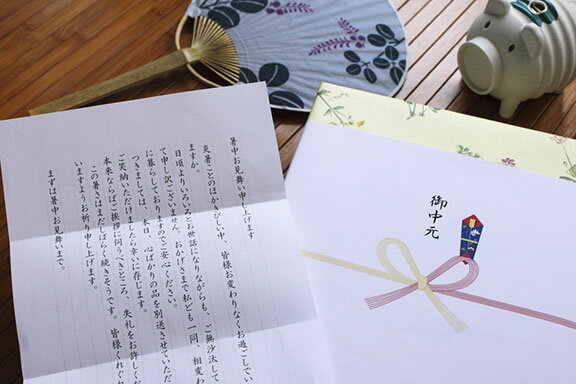 暑中お見舞い申し上げます
炎暑ことのほかきびしい中、皆様お変わりなくお過ごしでい
ますか。
日頃よりいろいろとお世話になりながらも、ご無沙汰して
て申し訳ございません。おかげさまで私ども一同、相変わ
に暮らしておりますのでご安心ください。
つきましては、本日、心ばかりの品を別送させていただ
ご笑納いただけましたら幸いに存じます。
本来ならばご挨拶に伺うべきところ、失礼をお許しくだ
この暑さはまだしばらく続きそうです。皆様くれぐれ
いますようお祈り申し上げます。
まずは暑中お見舞いまで。
御中元